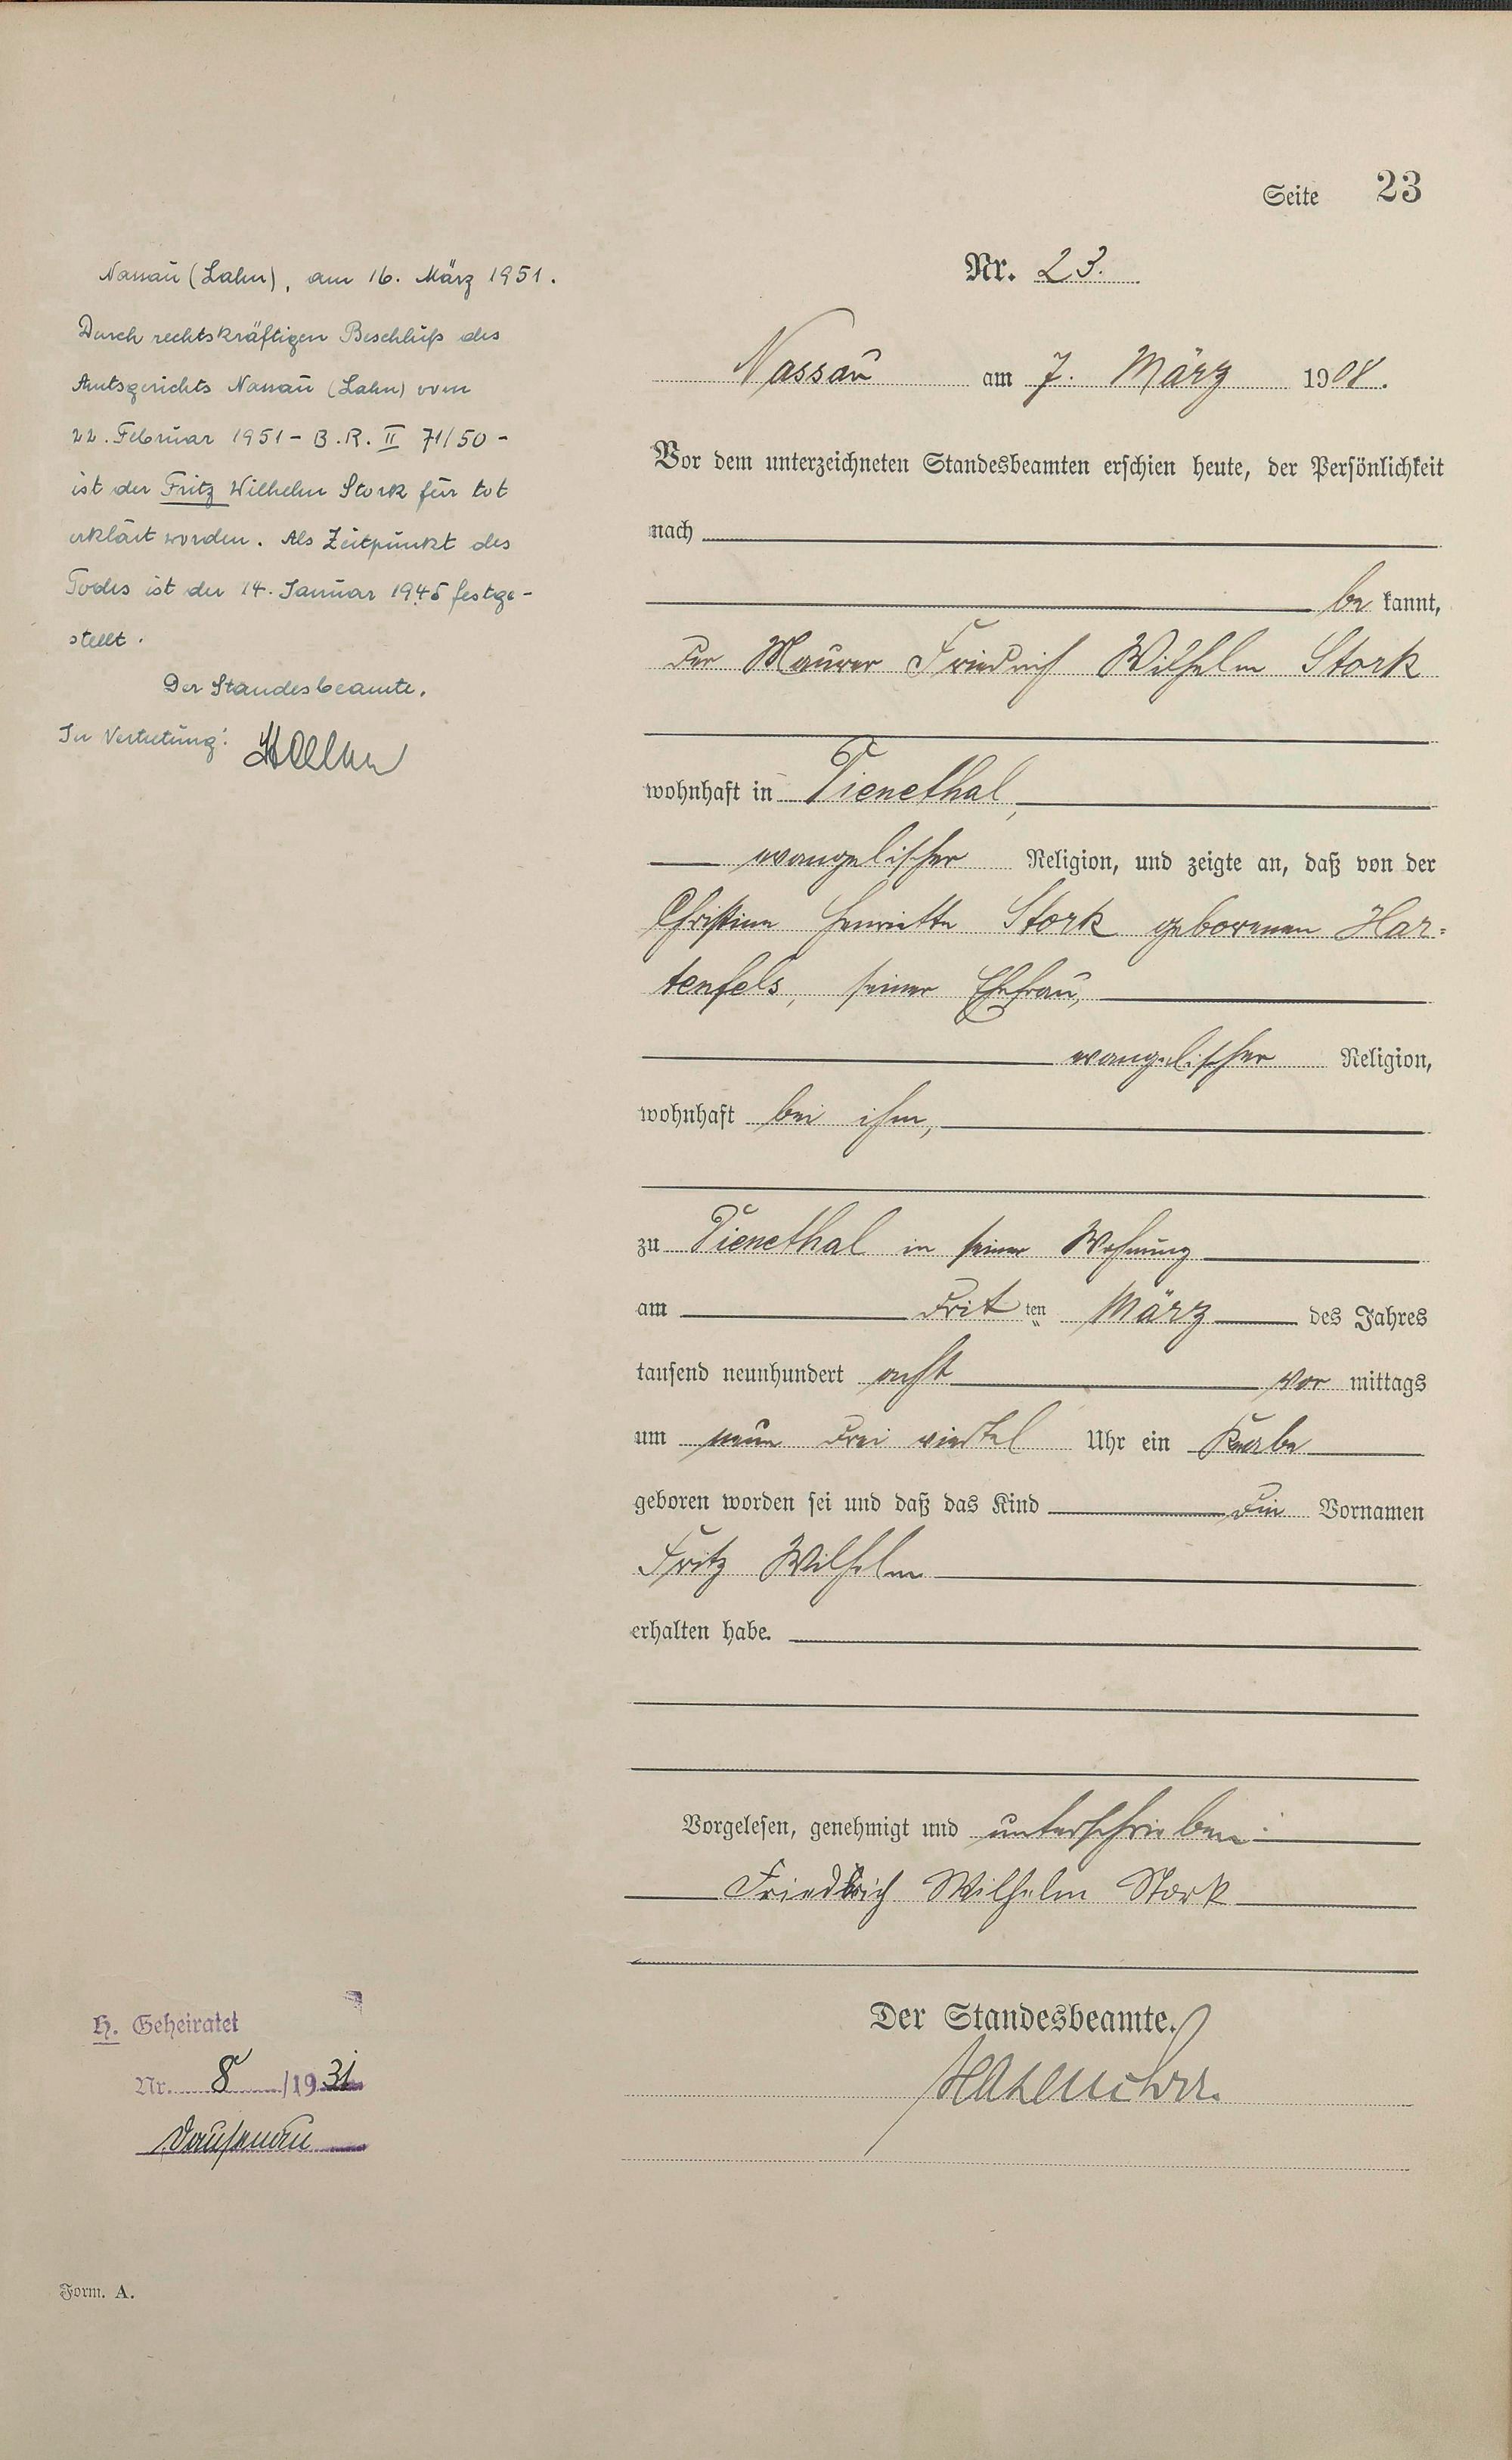 Seite 23
Nr. 23.
Nassau am 7. März 1908.
Vor dem unterzeichneten Standesbeamten erschien heute, der Persönlichkeit
nach
bekannt,
der Maurer Friedrich Wilhelm Stork
wohnhaft in Dienethal,
evangelischer Religion, und zeigte an, daß von der
Christine Henriette Stork geborenen Har-
tenfels, seiner Ehefrau,
evangelischer Religion,
wohnhaft bei ihm,
zu Dienethal in seiner Wohnung
am dritten März des Jahres
tausend neunhundert acht vor mittags
um neun drei viertel Uhr ein Knabe
geboren worden sei und daß das Kind die Vornamen
Fritz Wilhelm
erhalten habe.
Vorgelesen, genehmigt und unterschrieben:
Friedrich Wilhelm Stork
Der Standesbeamte.
Nassau (Lahn), am 16. März 1951.
Durch rechtskräftigen Beschluß des
Amtsgerichts Nassau (Lahn) vom
22. Februar 1951 - B.R. II 71/50 -
ist der Fritz Wilhelm Stork für tot
erklärt worden. Als Zeitpunkt des
Todes ist der 14. Januar 1945 festge-
stellt.
Der Standesbeamte.
In Vertretung:
H. Geheiratet
Nr. 8/1931
Dausenau
Form. A.